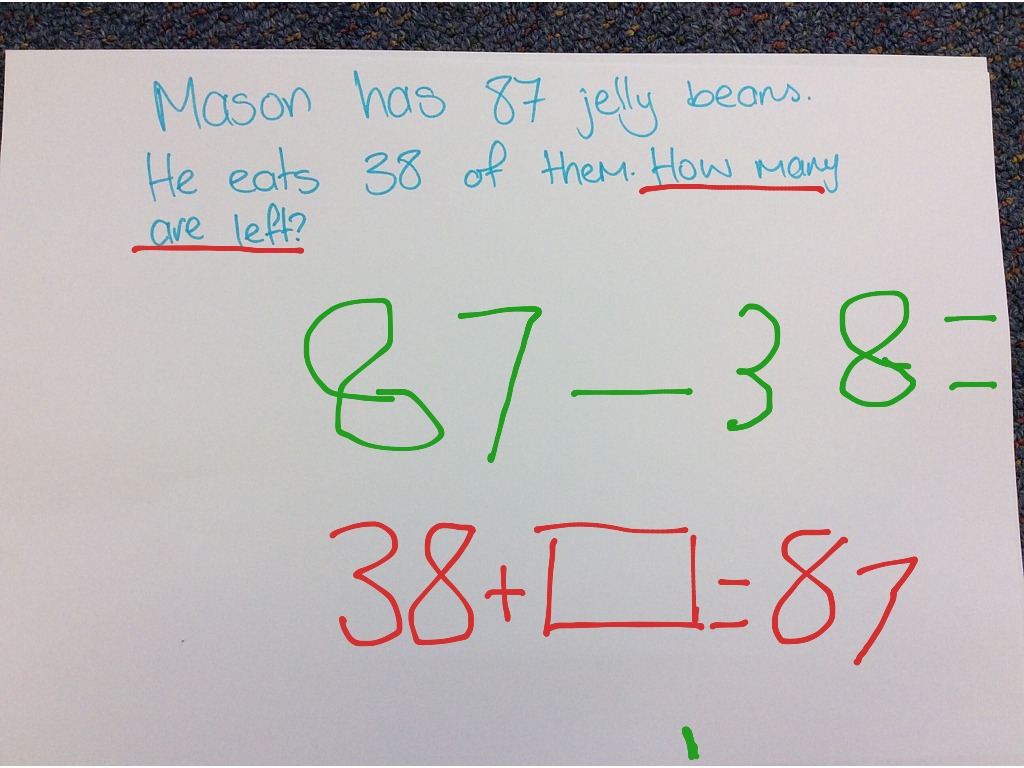 Mason has 87 jelly beans.
He eats 38 of them. How many
are left?
87 - 38 =
38 + □ = 87